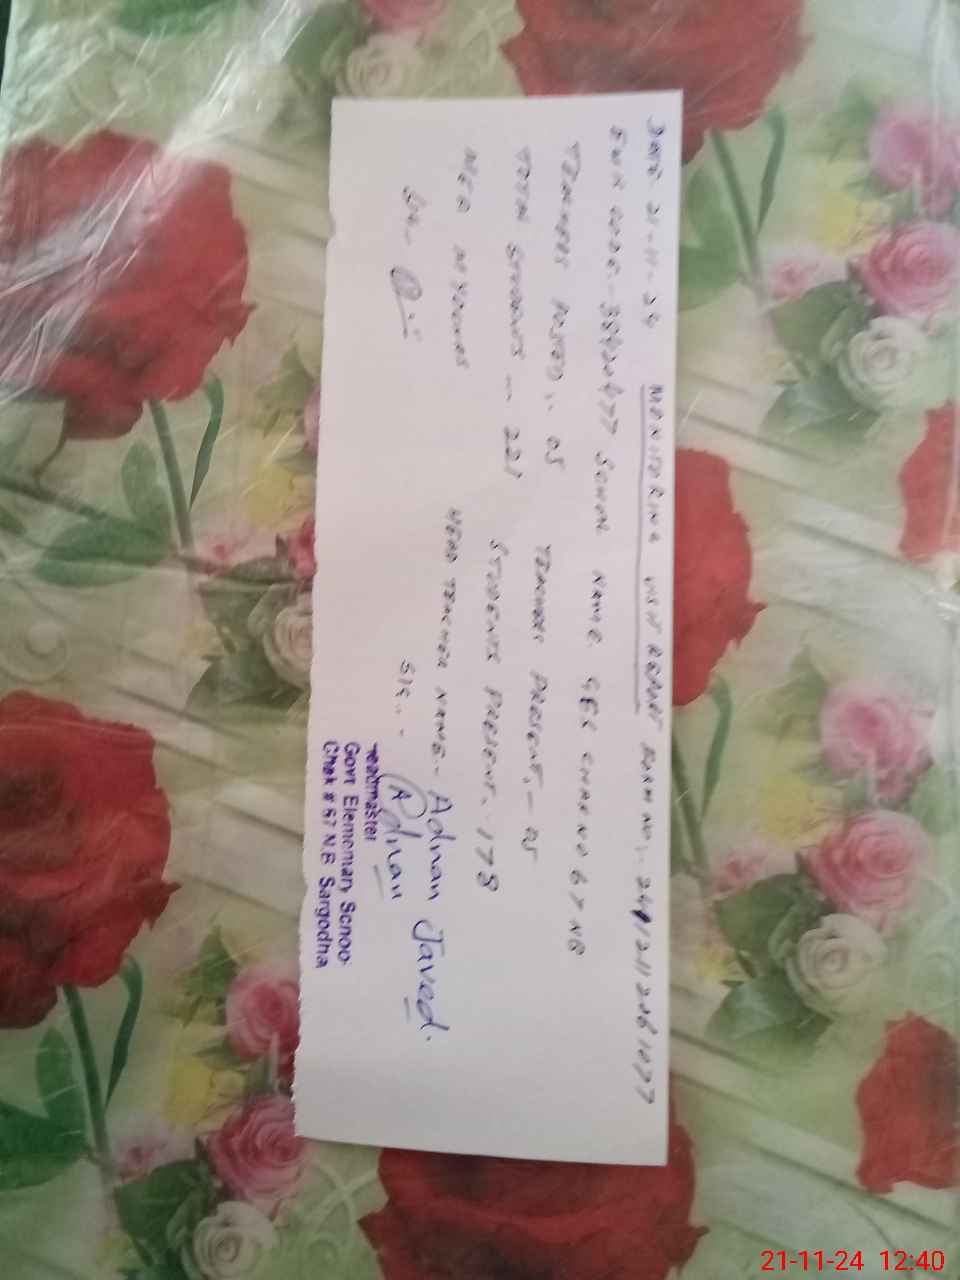 DATE. 21-11-24 MONITORING VISIT REPORT FORM NO:-
EMIS CODE-38420477 SCHOOL NAME. GES CHAK NO 67 NB
TEACHERS POSTED:- 05 TEACHERS PRESENT,- 05
TOTAL STUDENTS - 221 STUDENTS PRESENT. 178
MEA HEAD TEACHER NAME- Adnan Javed.
SIG:- Adnan
Headmaster
Govt Elementary School
Chak # 67 N.B Sargodha
21-11-24 12:40